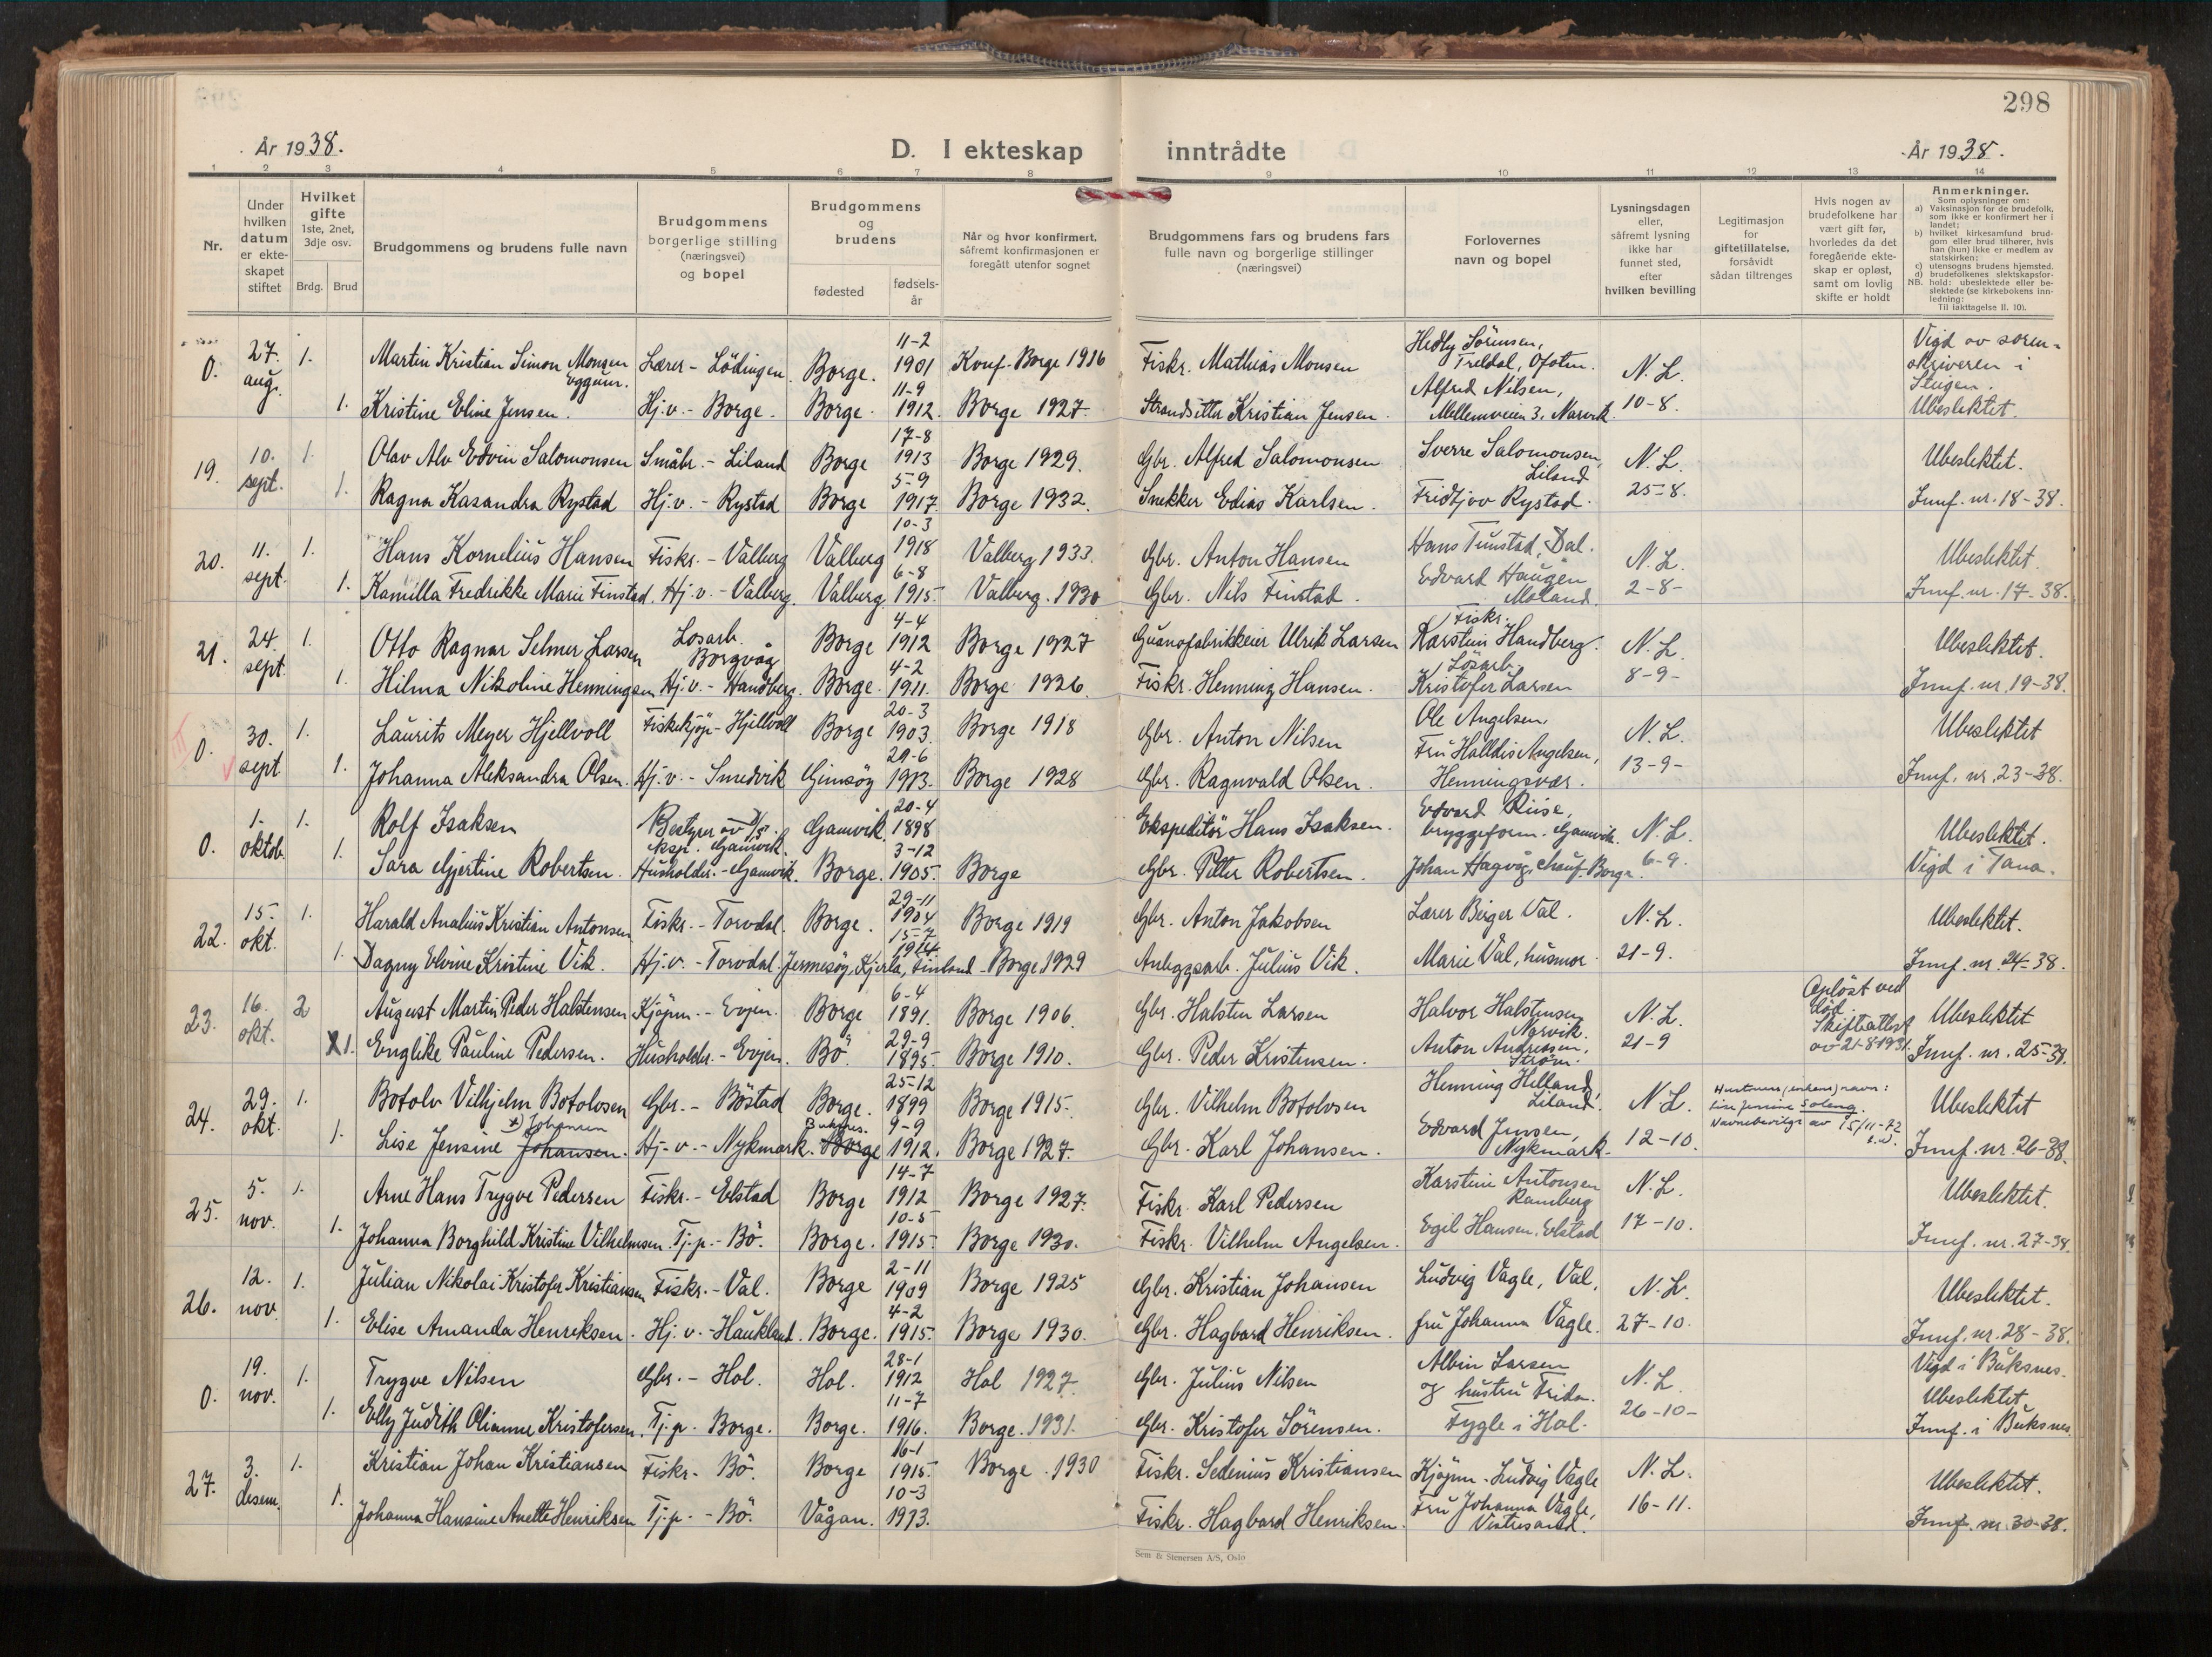 298
År 1938.
D. I ekteskap inntrådte
År 1938.
1 2 3 4 5 6 7 8 9 10 11 12 13 14
Nr.
Under hvilken datum er ekteskapet stiftet
Hvilket gifte 1ste, 2net, 3dje osv.
Brdg. Brud
Brudgommens og brudens fulle navn
Brudgommens borgerlige stilling (næringsvei) og bopel
Brudgommens og brudens
fødested
fødselsår
Når og hvor konfirmert, såfremt konfirmasjonen er foregått utenfor sognet
Brudgommens fars og brudens fars fulle navn og borgerlige stillinger (næringsvei)
Forlovernes navn og bopel
Lysningsdagen eller, såfremt lysning ikke har funnet sted, efter hvilken bevilling
Legitimasjon for giftetillatelse, forsåvidt sådan tiltrenges
Hvis nogen av brudefolkene har vært gift før, hvorledes da det foregående ekteskap er opløst, samt om lovlig skifte er holdt
Anmerkninger.
Som oplysninger om:
a) Vaksinasjon for de brudefolk, som ikke er konfirmert her i landet;
b) hvilket kirkesamfund brudgom eller brud tilhører, hvis han (hun) ikke er medlem av statskirken;
c) utensogns brudens hjemsted.
d) brudefolkenes slektskapsforhold: ubeslektede eller beslektede (se kirkebokens innledning:
NB. Til iakttagelse II. 10).
0. 27. aug. 1. Martin Kristian Simon Monsen Eggum. Lærer - Lödingen. Borge. 11-2 1901 Konf. Borge 1916 Fiskr. Mathias Monsen Hedly Sörensen, Treldal, Ofoten. N. L. 10-8. Vigd av sorenskriveren i Steigen. Ubeslektet.
1. Kristine Eline Jensen. Hj.v. - Borge. Borge. 11-9 1912. Borge 1927. Strandsitter Kristian Jensen. Alfred Nilsen, Mellemveien 3, Narvik.
19. 10. sept. 1. Olav Alv Edvin Salomonsen Småbr. - Liland Borge 17-8 1913 Borge 1929. Gbr. Alfred Salomonsen Sverre Salomonsen, Liland N. L. 25-8. Ubeslektet.
1. Ragna Kasandra Rystad Hj.v. - Rystad Borge 5-9 1917. Borge 1932. Snekker Edias Karlsen. Fridtjov Rystad. Innf. nr. 18-38.
20. 11. sept. 1. Hans Kornelius Hansen Fiskr. - Valberg Valberg 10-3 1918 Valberg 1933. Gbr. Anton Hansen Hans Tunstad, Dal. N. L. 2-8- Ubeslektet.
1. Kamilla Fredrikke Marie Finstad. Hj.v. - Valberg. Valberg 6-8 1915. Valberg. 1930 Gbr. Nils Finstad. Edvard Haugen Moland. Innf. nr. 17-38.
21. 24. sept. 1. Otto Ragnar Selmer Larsen Losarb. Borgvåg Borge 4-4 1912 Borge 1927 Guanofabrikkeier Ulrik Larsen Fiskr. Karstein Handberg. N. L. 8-9- Ubeslektet.
1. Hilma Nikoline Henningsen Hj.v. - Handberg. Borge. 4-2 1911. Borge 1926. Fiskr. Henning Hansen. Lösarb. Kristofer Larsen Innf. nr. 19-38.
0. 30. sept 1. Laurits Meyer Hjellvoll Fiskekjöp - Hjellvoll Borge 20-3 1903. Borge 1918 Gbr. Anton Nilsen Ole Angelsen, N. L. 13-9- Ubeslektet
1. Johanna Aleksandra Olsen. Hj.v. - Smedvik Gimsöy 29-6 1913. Borge 1928 Gbr. Ragnvald Olsen. Fru Halldis Angelsen, Henningsvær. Innf. nr. 23-38.
0. 1. oktob. 1. Rolf Isaksen Bestyrer av D/S. eksp. Gamvik. Gamvik. 20-4 1898 Ekspeditör Hans Isaksen. Edvard Riise, bryggeform. Gamvik. N. L. 6-9. Ubeslektet.
1. Sara Gjertine Robertsen. Husholder. - Gamvik. Borge. 3-12 1905. Borge Gbr. Petter Robertsen. Johan Hagvåg, chauf. Borge. Vigd i Tana.
22. 15. okt. 1. Harald Analius Kristian Antonsen Fiskr. - Torvdal. Borge. 29-11 1904 Borge 1919 Gbr. Anton Jakobsen Lærer Birger Val. N. L. 21-9. Ubeslektet.
1. Dagny Elvine Kristine Vik. Hj.v. - Torvdal. Jermesöy, Kjerla, Finland - 15-7 1914 Borge 1929 Anleggsarb. Julius Vik. Marie Val, husmor. Innf. nr. 24-38.
23. 16. okt. 2 August Martin Peder Halstensen Kjöpm. - Evjen. Borge 6-4 1891. Borge 1906. Gbr. Halsten Larsen Halvor Halstensen Narvik. N. L. 21-9 Oplöst ved död. Skifteattest av 21-8-1931. Ubeslektet
X 1. Englike Pauline Pedersen. Husholder. - Evjen. Bö. 29-9 1895. Borge 1910. Gbr. Peder Kristensen. Anton Andresen, Ström. Innf. nr. 25-38.
24. 29. okt. 1. Botolv Vilhjelm Botolvsen Gbr. - Böstad Borge. 25-12 1899 Borge 1915. Gbr. Vilhelm Botolvsen Henning Helland, Liland. N. L. 12-10. Hustruens navn: Lise Jensine Soleng. Navnebevilgn. av 15/11-72 Ubeslektet
1. x) Johansen Lise Jensine Johansen. Hj.v. - Nykmark. Buksnes. Borge 9-9 1912. Borge 1927. Gbr. Karl Johansen. Edvard Jensen, Nykmark. Innf. nr. 26-38.
25. 5. nov. 1. Arne Hans Trygve Pedersen Fiskr. - Elstad Borge 14-7 1912 Borge 1927. Fiskr. Karl Pedersen Karstine Antonsen Ramberg N. L. 17-10. Ubeslektet.
1. Johanna Borghild Kristine Vilhelmsen. Tj.p. - Bö. Borge. 10-5 1915. Borge 1930. Fiskr. Vilhelm Angelsen. Egil Hansen, Elstad Innf. nr. 27-38.
26. 12. nov. 1. Julian Nikolai Kristofer Kristiansen Fiskr. - Val. Borge 2-11 1909 Borge 1925 Gbr. Kristian Johansen Ludvig Vagle, Val, N. L. 27-10. Ubeslektet.
1. Elise Amanda Henriksen. Hj.v. - Haukland. Borge. 4-2 1915. Borge 1930. Gbr. Hagbard Henriksen. fru Johanna Vagle. Innf. nr. 28-38.
0. 19. nov. 1. Trygve Nilsen Gbr. - Hol. Hol. 28-1 1912 Hol 1927. Gbr. Julius Nilsen Albin Larsen og hustru Frida. Fygle i Hol. N. L. 26-10- Vigd i Buksnes. Ubeslektet.
1. Elly Judith Olianne Kristofersen. Tj.p. Borge. Borge. 11-7 1916. Borge. 1931. Gbr. Kristofer Sörensen. Innf. i Buksnes
27. 3. desem. 1. Kristian Johan Kristiansen Fiskr. - Bö. Borge 16-1 1915. Borge. 1930 Fiskr. Sedenius Kristiansen Kjöpm. Ludvig Vagle N. L. 16-11. Ubeslektet.
1. Johanna Hansine Anette Henriksen Tj.p. - Bö. Vågan. 10-3 1913. Fiskr. Hagbard Henriksen. Fru Johanna Vagle, Vestresand. Innf. nr. 30-38.
Sem & Stenersen A/S, Oslo